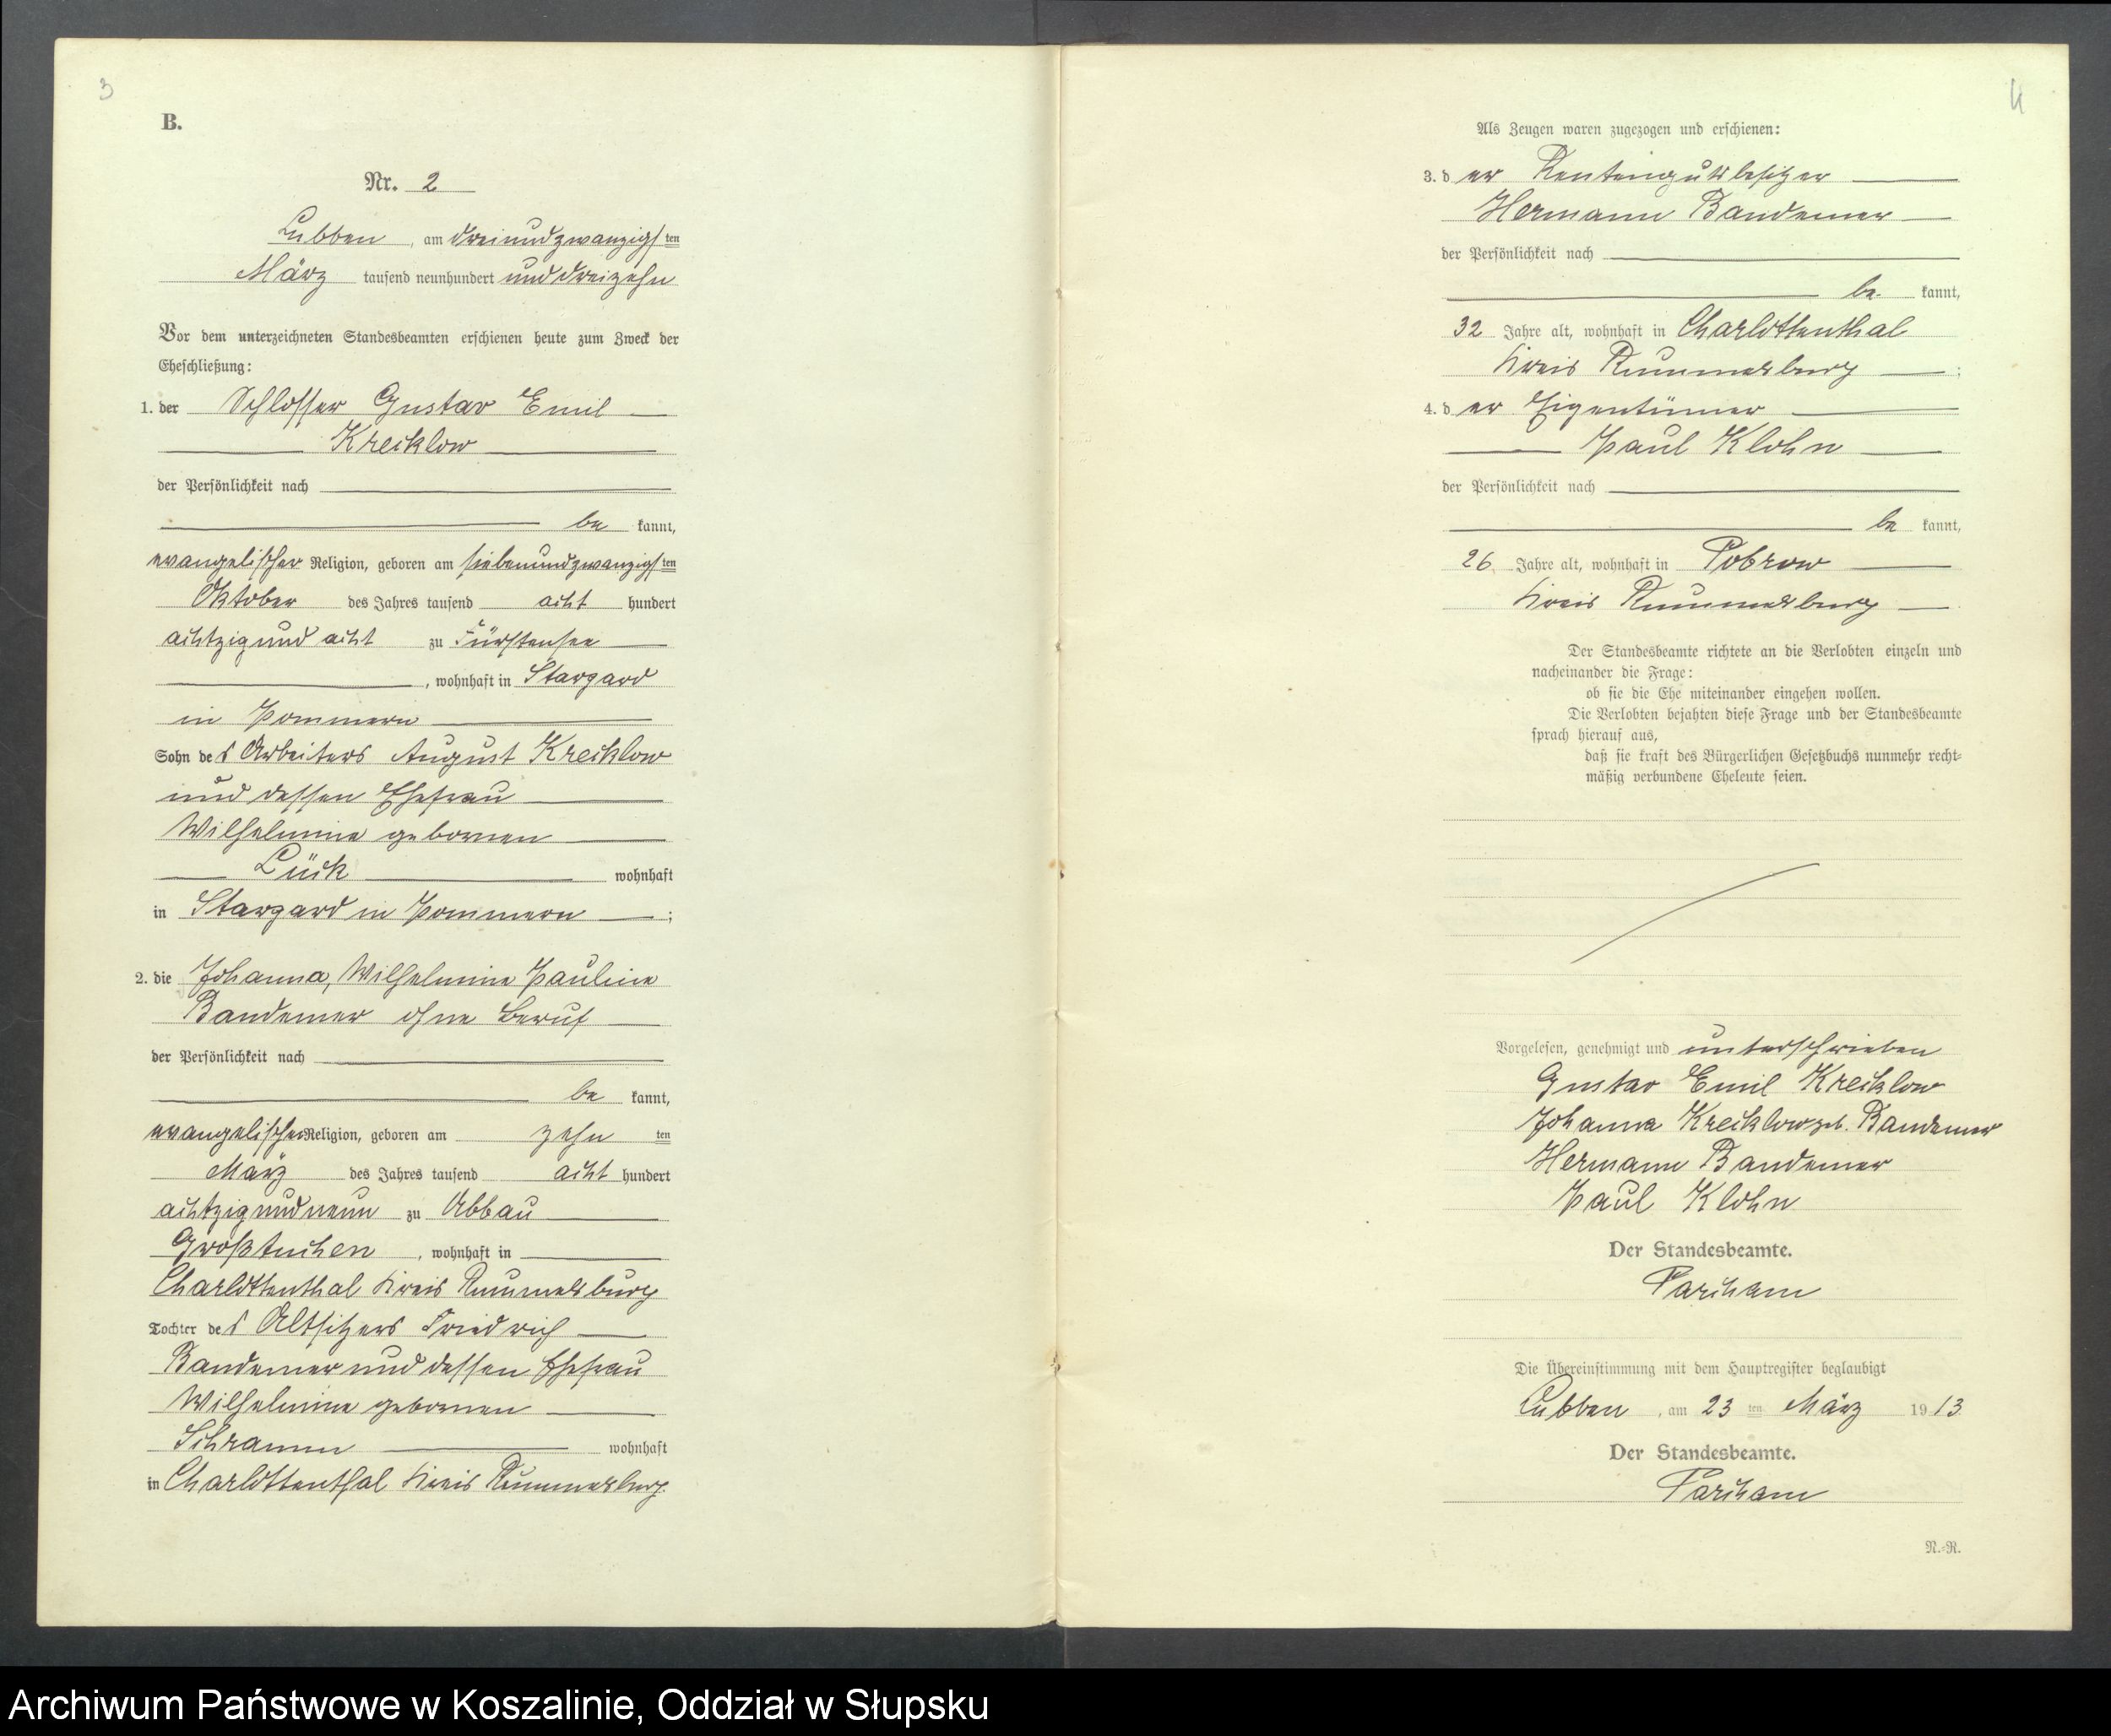 3
B.
Nr. 2
Lubben, am dreiundzwanzigsten
März tausend neunhundert und dreizehn
Vor dem unterzeichneten Standesbeamten erschienen heute zum Zweck der
Eheschließung:
1. der Schlosser Gustav Emil
Krecklow
der Persönlichkeit nach
be kannt,
evangelischer Religion, geboren am siebenundzwanzigsten
Oktober des Jahres tausend acht hundert
achtzig und acht zu Fürstensee
, wohnhaft in Stargard
in Pommern
Sohn des Arbeiters August Krecklow
und dessen Ehefrau
Wilhelmine gebornen
Lück wohnhaft
in Stargard in Pommern ;
2. die Johanna, Wilhelmine Pauline
Bandemer ohne Beruf
der Persönlichkeit nach
be kannt,
evangelischer Religion, geboren am zehn ten
März des Jahres tausend acht hundert
achtzig und neun zu Abbau
Großtuchen, wohnhaft in
Charlottenthal Kreis Rummelsburg
Tochter des Altsitzers Friedrich
Bandemer und dessen Ehefrau
Wilhelmine gebornen
Schramm wohnhaft
in Charlottenthal Kreis Rummelsburg.
4
Als Zeugen waren zugezogen und erschienen:
3. der Rentengutsbesitzer
Hermann Bandemer
der Persönlichkeit nach
be kannt,
32 Jahre alt, wohnhaft in Charlottenthal
Kreis Rummelsburg ;
4. der Eigentümer
Paul Klohn
der Persönlichkeit nach
be kannt,
26 Jahre alt, wohnhaft in Pobrow
Kreis Rummelsburg
Der Standesbeamte richtete an die Verlobten einzeln und
nacheinander die Frage:
ob sie die Ehe miteinander eingehen wollen.
Die Verlobten bejahten diese Frage und der Standesbeamte
sprach hierauf aus,
daß sie kraft des Bürgerlichen Gesetzbuchs nunmehr recht-
mäßig verbundene Eheleute seien.
Vorgelesen, genehmigt und unterschrieben
Gustav Emil Krecklow
Johanna Krecklow geb. Bandemer
Hermann Bandemer
Paul Klohn
Der Standesbeamte.
Parcham
Die Übereinstimmung mit dem Hauptregister beglaubigt
Lubben, am 23 ten März 1913
Der Standesbeamte.
Parcham
N.-R.
Archiwum Państwowe w Koszalinie, Oddział w Słupsku